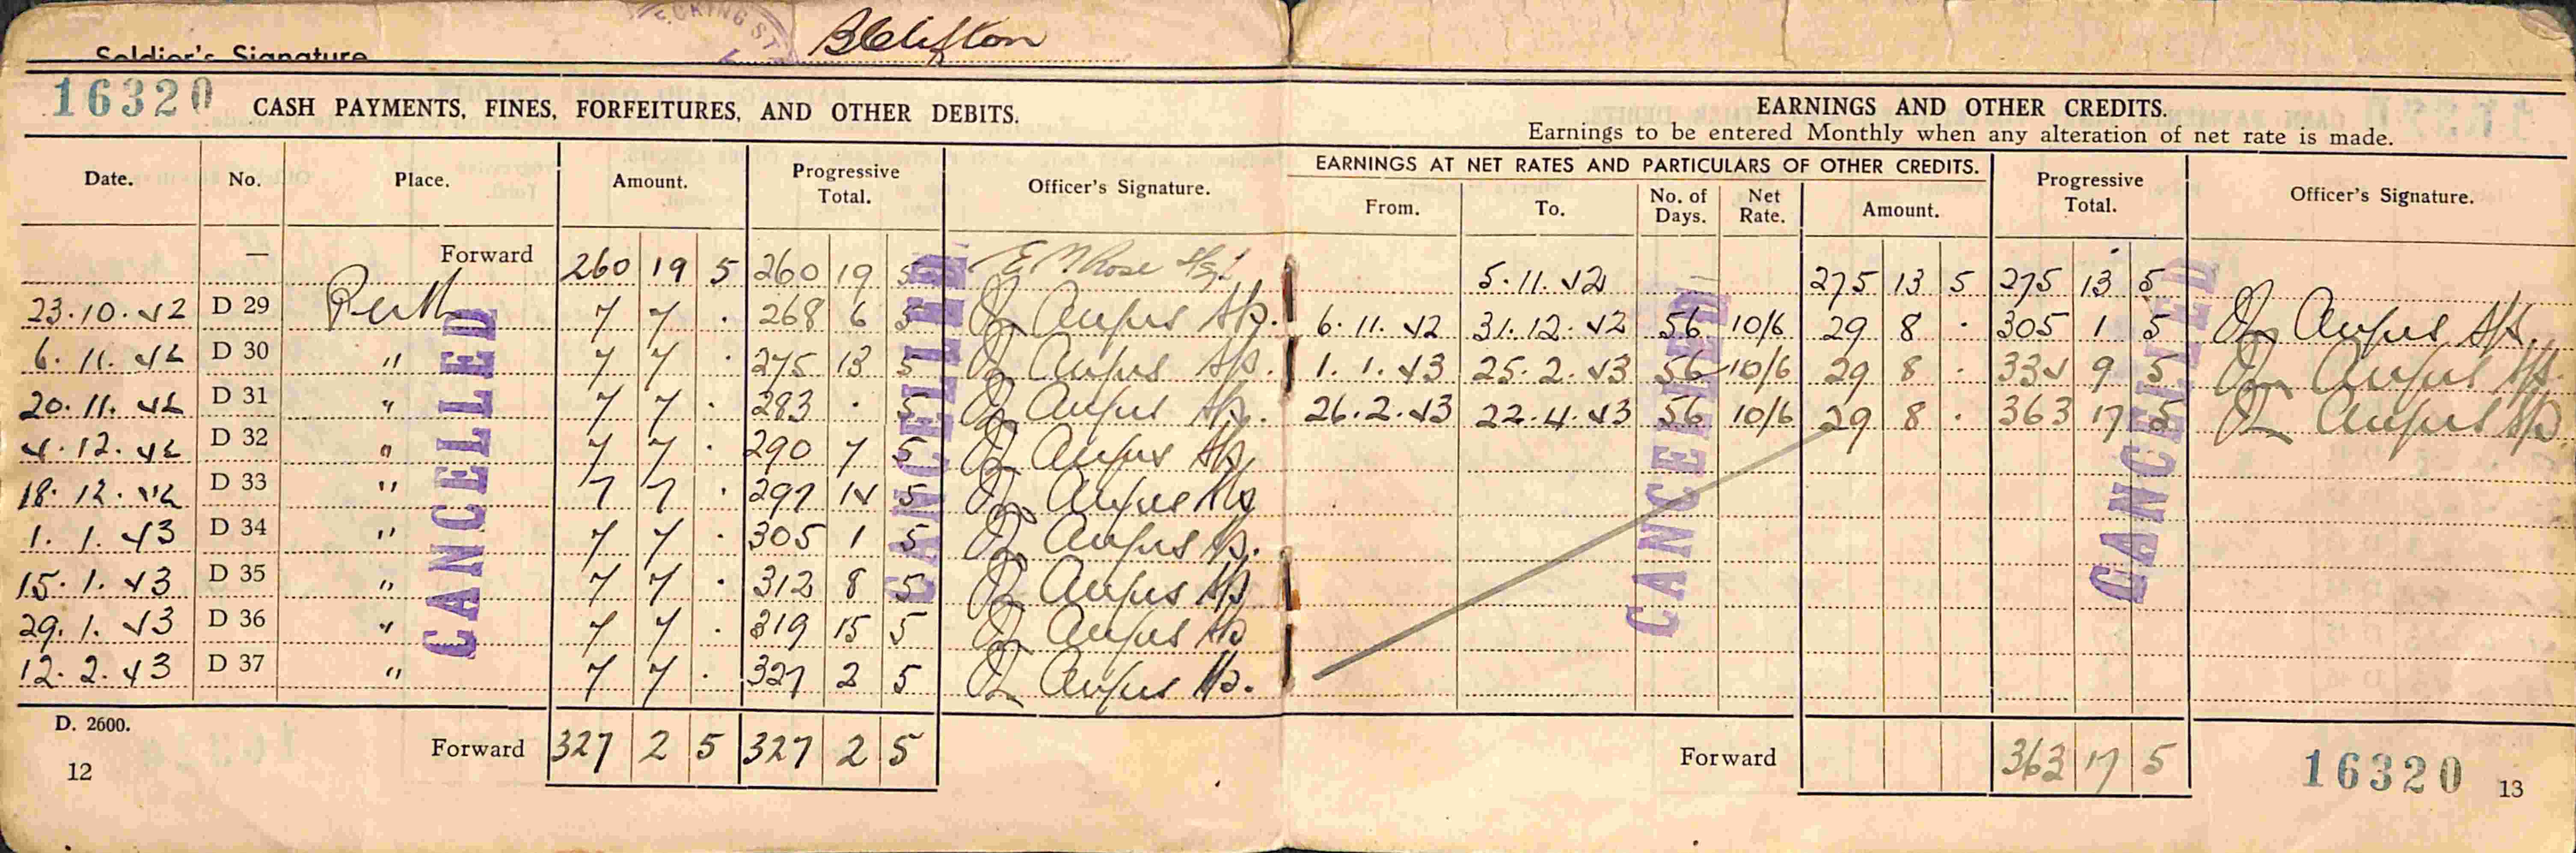 ECKING ST
Soldier's Signature BClifton
16320 CASH PAYMENTS, FINES, FORFEITURES, AND OTHER DEBITS.
Date. No. Place. Amount. Progressive Total. Officer's Signature.
— Forward 260 19 5 260 19 5 E M Rose
23.10.42 D 29 Perth 7 7 . 268 6 5 Angus
6.11.42 D 30 " 7 7 . 275 13 5 Angus
20.11.42 D 31 " 7 7 . 283 . 5 Angus
4.12.42 D 32 " 7 7 . 290 7 5 Angus
18.12.42 D 33 " 7 7 . 297 14 5 Angus
1.1.43 D 34 " 7 7 . 305 1 5 Angus
15.1.43 D 35 " 7 7 . 312 8 5 Angus
29.1.43 D 36 " 7 7 . 319 15 5 Angus
12.2.43 D 37 " 7 7 . 327 2 5 Angus
CANCELLED
CANCELLED
D. 2600.
Forward 327 2 5 327 2 5
12
EARNINGS AND OTHER CREDITS.
Earnings to be entered Monthly when any alteration of net rate is made.
EARNINGS AT NET RATES AND PARTICULARS OF OTHER CREDITS. Progressive Total. Officer's Signature.
From. To. No. of Days. Net Rate. Amount.
5.11.42 275 13 5 275 13 5
6.11.42 31.12.42 56 10/6 29 8 . 305 1 5 Angus
1.1.43 25.2.43 56 10/6 29 8 . 334 9 5 Angus
26.2.43 22.4.43 56 10/6 29 8 . 363 17 5 Angus
CANCELLED
CANCELLED
Forward 363 17 5
16320 13